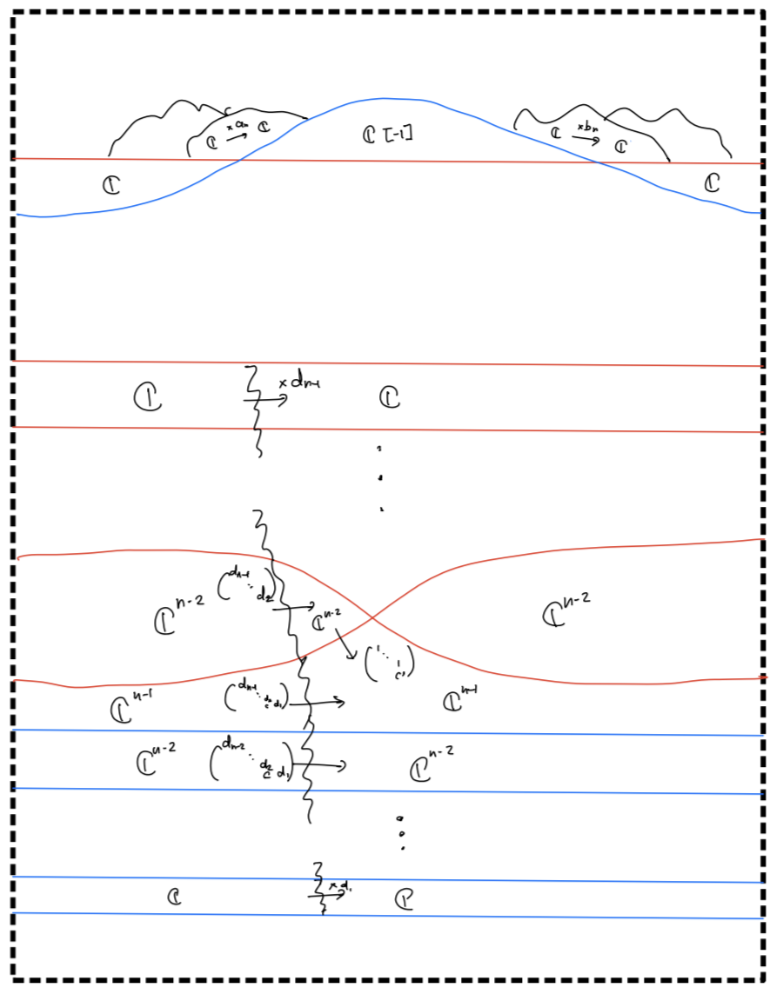 ×aₙ
ℂ → ℂ
ℂ [-1]
×bₙ
ℂ → ℂ
ℂ
ℂ
ℂ
×dₙ₋₁
ℂ
ℂⁿ⁻²
(dₙ₋₁ ⋱ d₂)
ℂⁿ⁻²
(1 ⋱ 1 c¹)
ℂⁿ⁻²
ℂⁿ⁻¹
ℂⁿ⁻¹
ℂⁿ⁻²
(dₙ₋₂ ⋱ d₂ c d₁)
ℂⁿ⁻²
ℂ
×d₁
ℂ